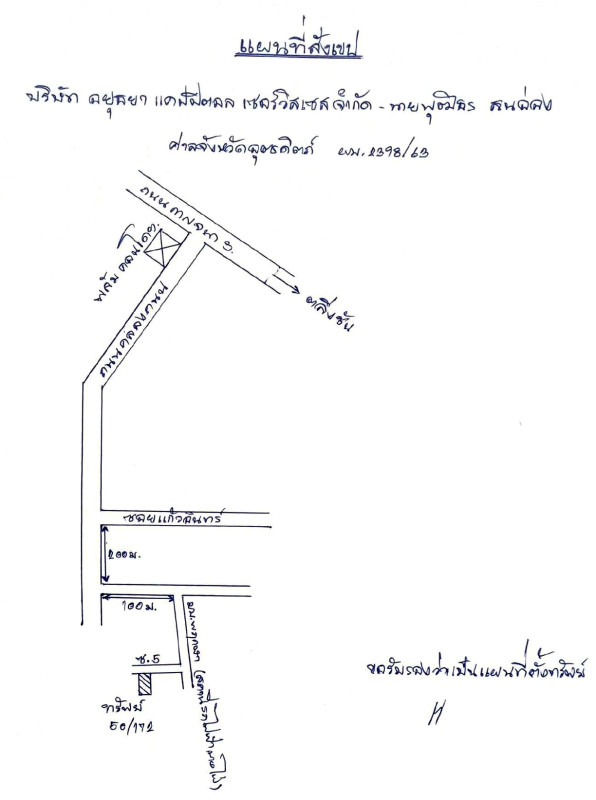 แผนที่สังเขป
บริษัท อยุธยา แคปปิตอล เซอร์วิสเซส จำกัด - นายพุฒิธร
ศาลจังหวัดอุตรดิตถ์ ผบ. 2398/63
ถนนกาญจนา ภ.
พลัม คอนโด
ตลิ่งชัน
ถนนคลองถนน
ซอยแก้วอินทร์
200ม.
100ม.
ซ.5
ทรัพย์
50/172
ขอรับรองว่าเป็นแผนที่ตั้งทรัพย์